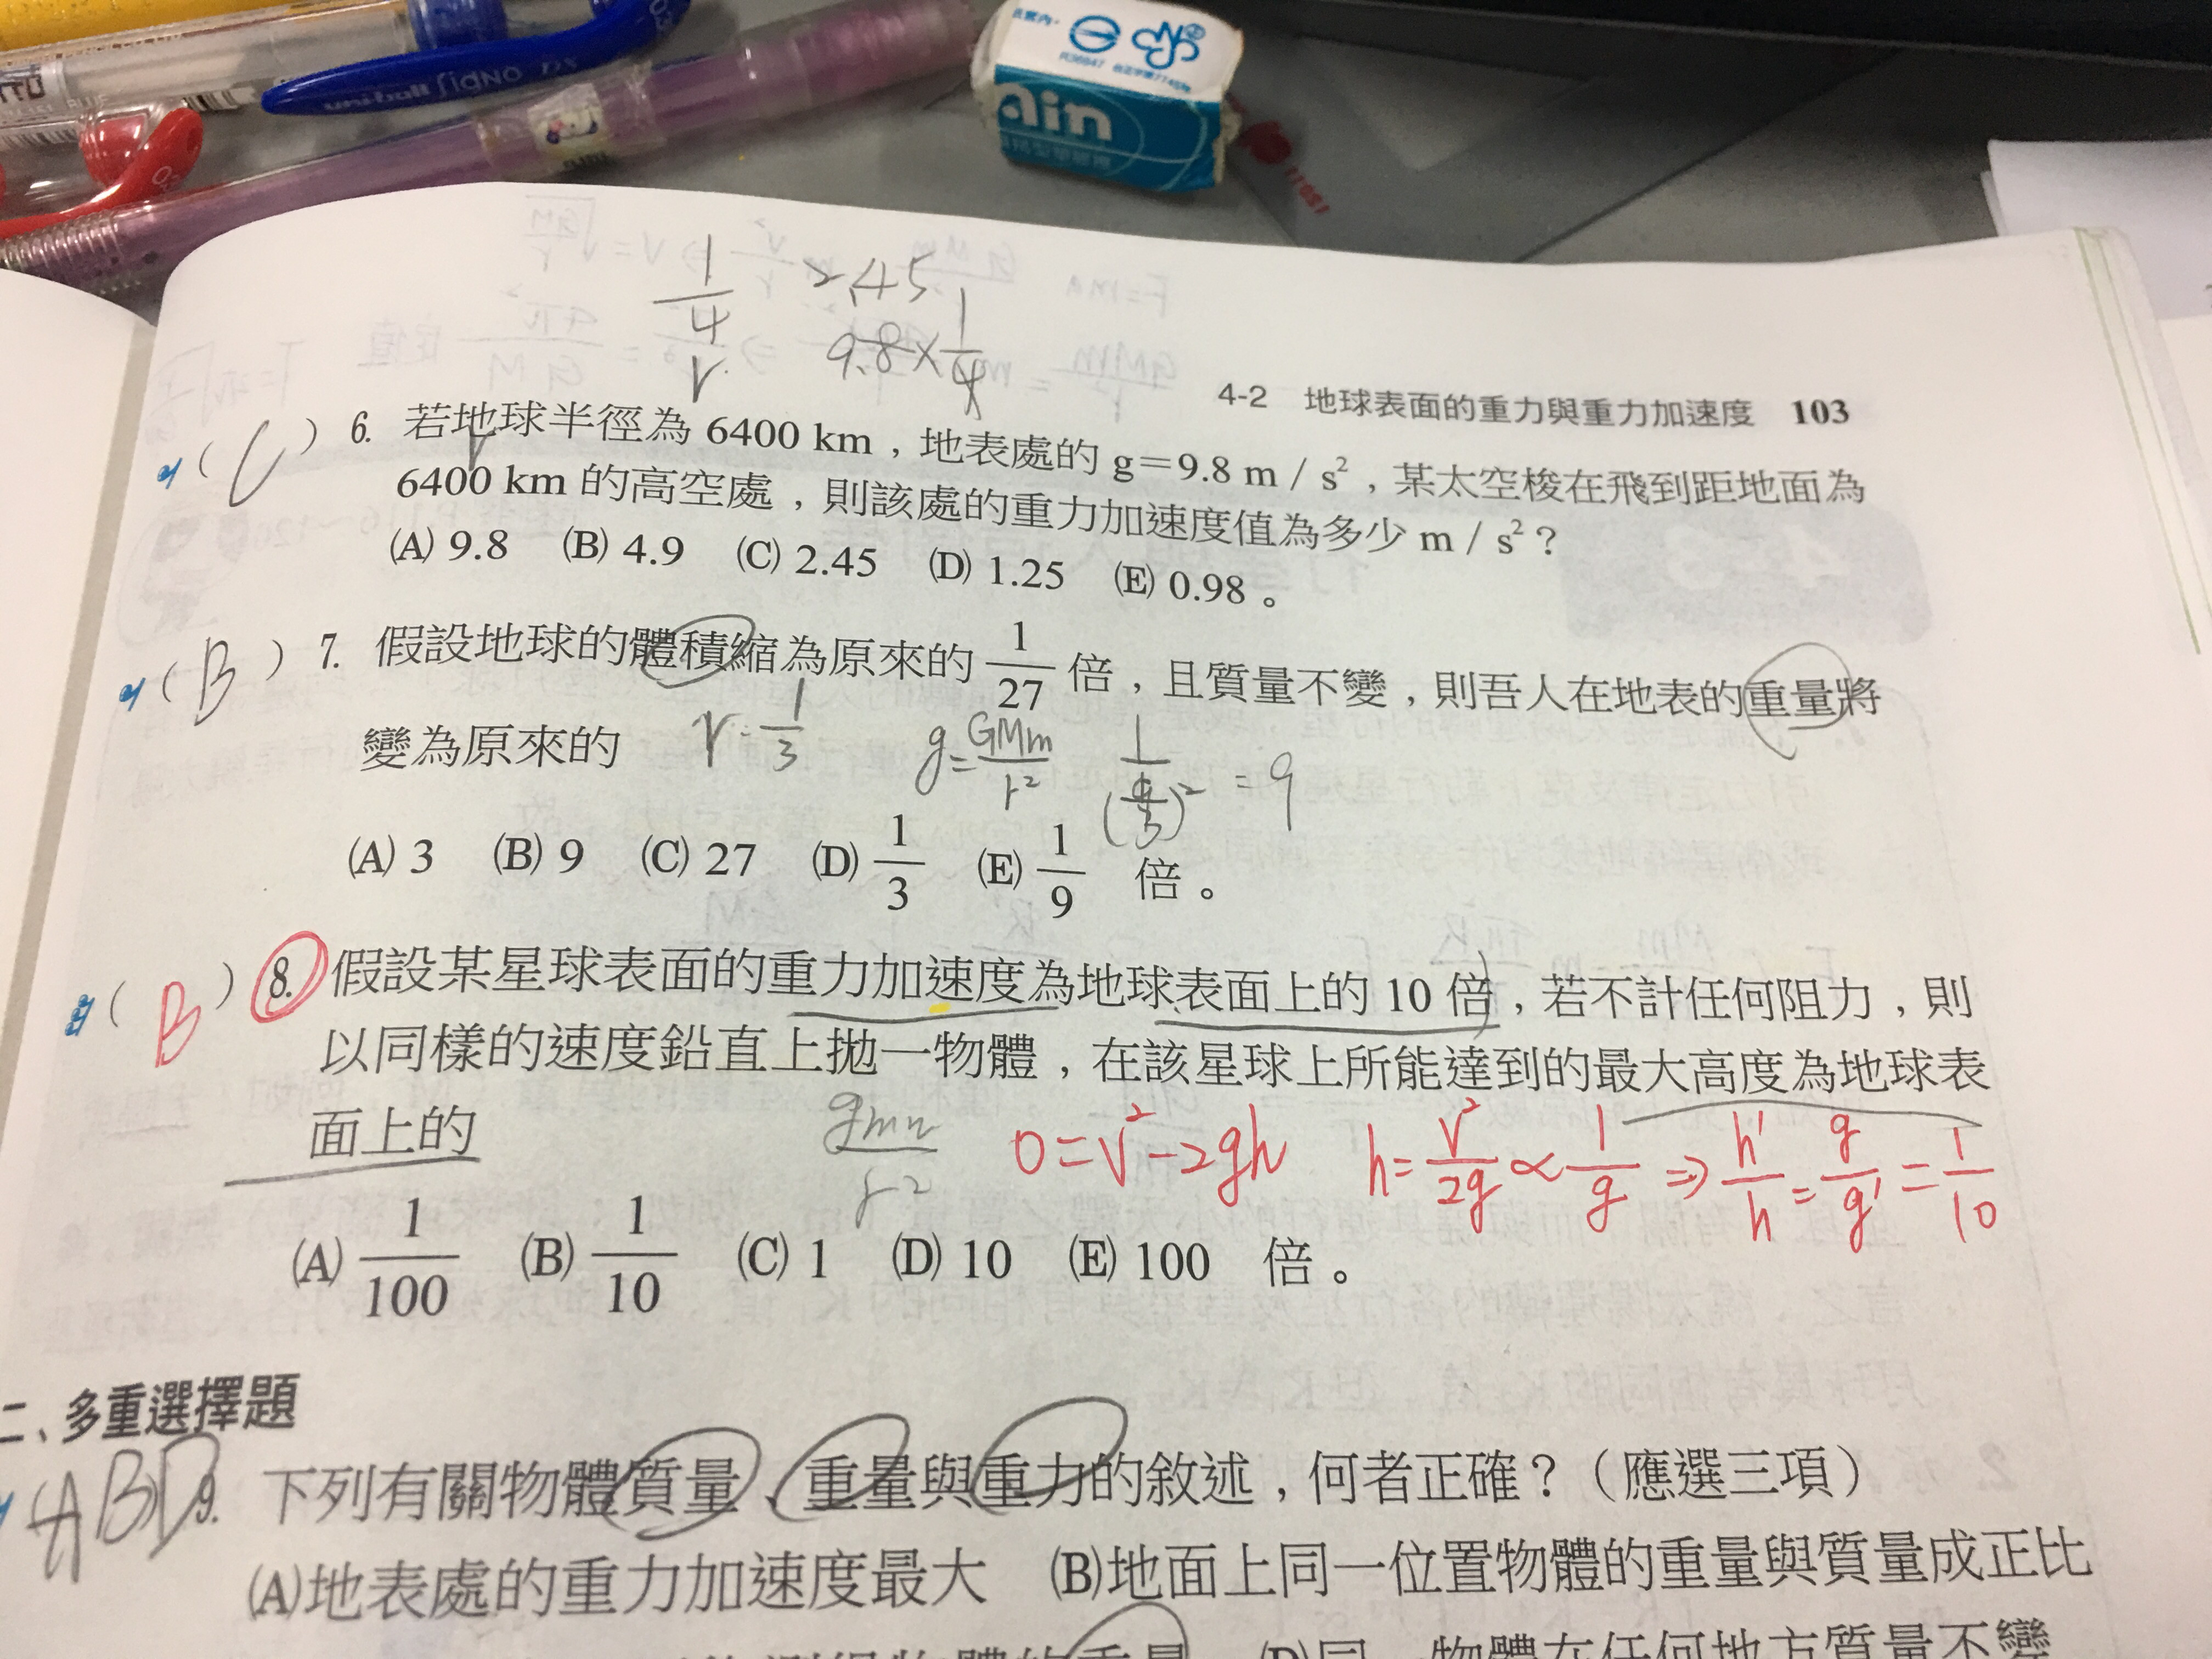 uni-ball SIGNO
Ain
1/4 2.45
r 9.8×1/4
4-2 地球表面的重力與重力加速度 103
(C) 6. 若地球半徑為 6400 km，地表處的 g＝9.8 m / s²，某太空梭在飛到距地面為
6400 km 的高空處，則該處的重力加速度值為多少 m / s²？
(A) 9.8 (B) 4.9 (C) 2.45 (D) 1.25 (E) 0.98。
(B) 7. 假設地球的體積縮為原來的 1/27 倍，且質量不變，則吾人在地表的重量將
變為原來的 r = 1/3 g=GMm/r² 1/(1/3)² = 9
(A) 3 (B) 9 (C) 27 (D) 1/3 (E) 1/9 倍。
(B) 8. 假設某星球表面的重力加速度為地球表面上的 10 倍，若不計任何阻力，則
以同樣的速度鉛直上拋一物體，在該星球上所能達到的最大高度為地球表
面上的 0=v²-2gh h=v²/2g∝1/g⇒h'/h=g/g'=1/10
(A) 1/100 (B) 1/10 (C) 1 (D) 10 (E) 100 倍。
二、多重選擇題
(ABD) 9. 下列有關物體質量、重量與重力的敘述，何者正確？（應選三項）
(A)地表處的重力加速度最大 (B)地面上同一位置物體的重量與質量成正比
物體的重量 (D)同一物體在任何地方質量不變